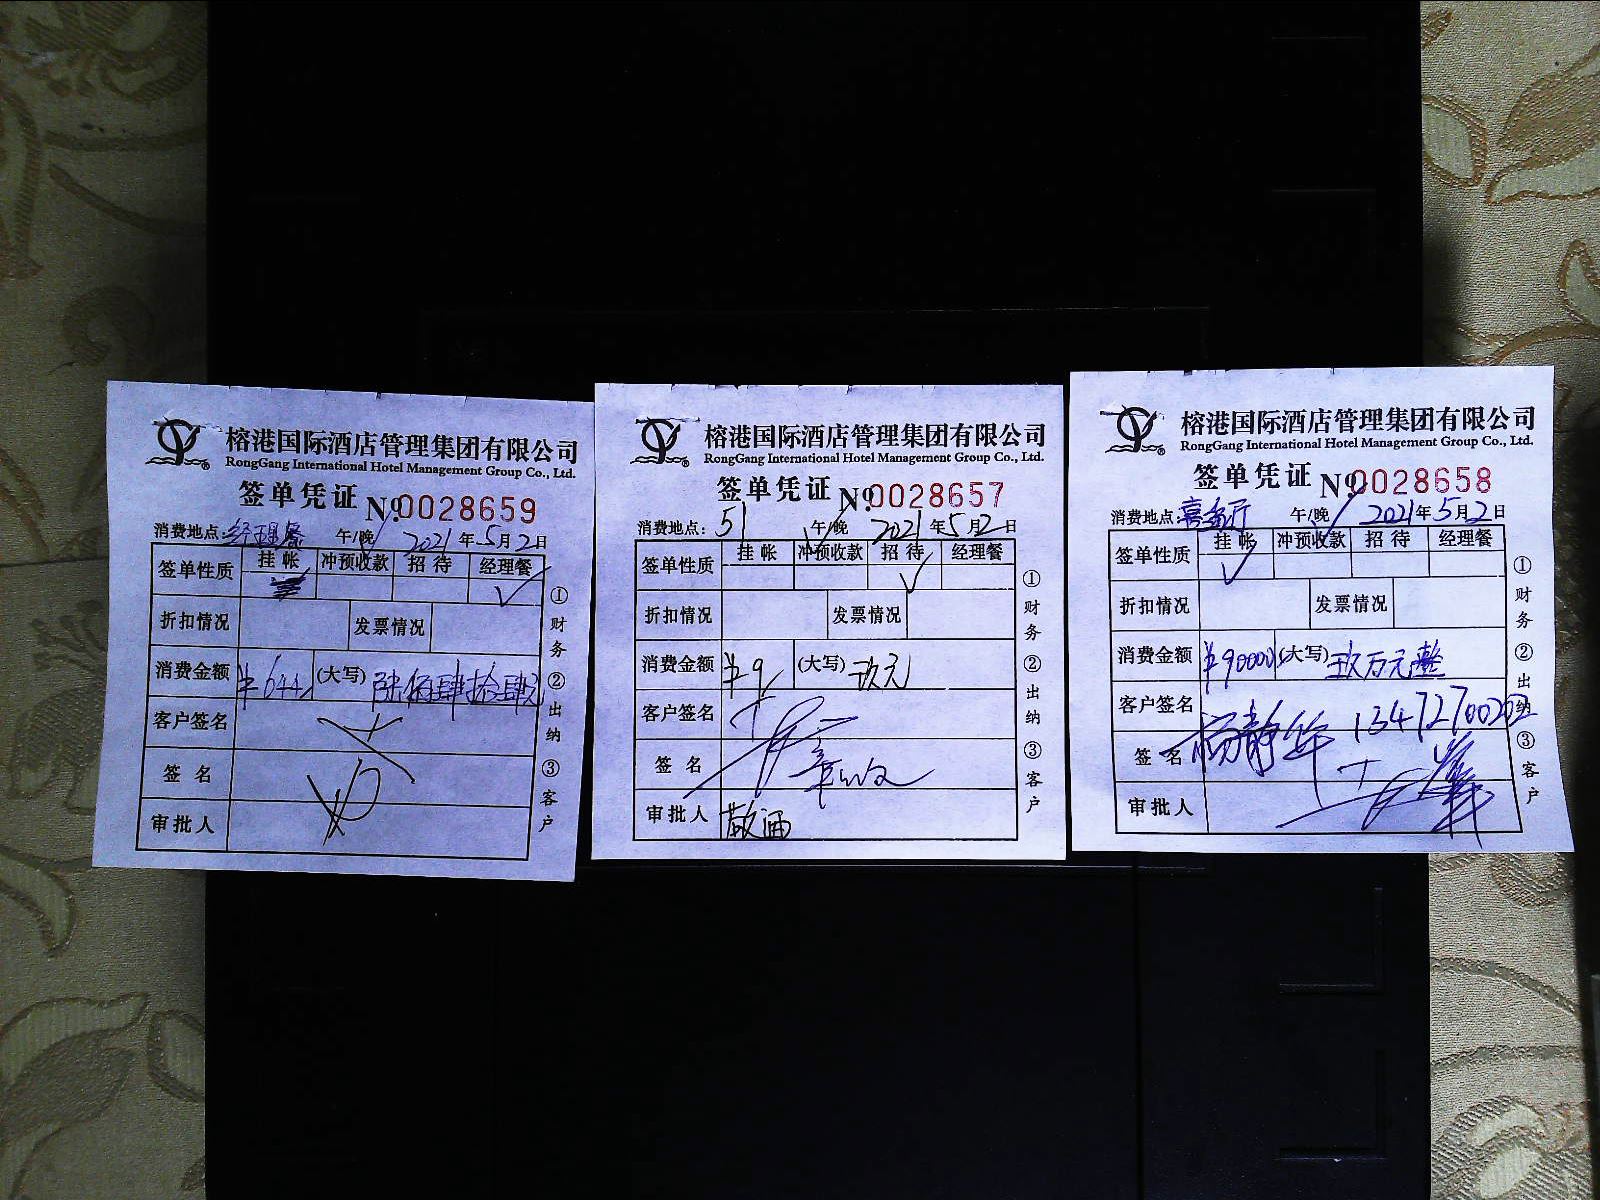 榕港国际酒店管理集团有限公司
RongGang International Hotel Management Group Co., Ltd.
签单凭证 №0028659
消费地点:经理餐 午/晚 2021年5月2日
签单性质 挂帐 冲预收款 招待 经理餐
折扣情况 发票情况
消费金额 ¥644 (大写) 陆佰肆拾肆元
客户签名
签名
审批人
①财务 ②出纳 ③客户
榕港国际酒店管理集团有限公司
RongGang International Hotel Management Group Co., Ltd.
签单凭证 №0028657
消费地点:51 午/晚 2021年5月2日
签单性质 挂帐 冲预收款 招待 经理餐
折扣情况 发票情况
消费金额 ¥9 (大写) 玖元
客户签名
签名
审批人 敬酒
①财务 ②出纳 ③客户
榕港国际酒店管理集团有限公司
RongGang International Hotel Management Group Co., Ltd.
签单凭证 №0028658
消费地点: 午/晚 2021年5月2日
签单性质 挂帐 冲预收款 招待 经理餐
折扣情况 发票情况
消费金额 ¥90000 (大写) 玖万元整
客户签名 杨静华 13472700202
签名
审批人
①财务 ②出纳 ③客户